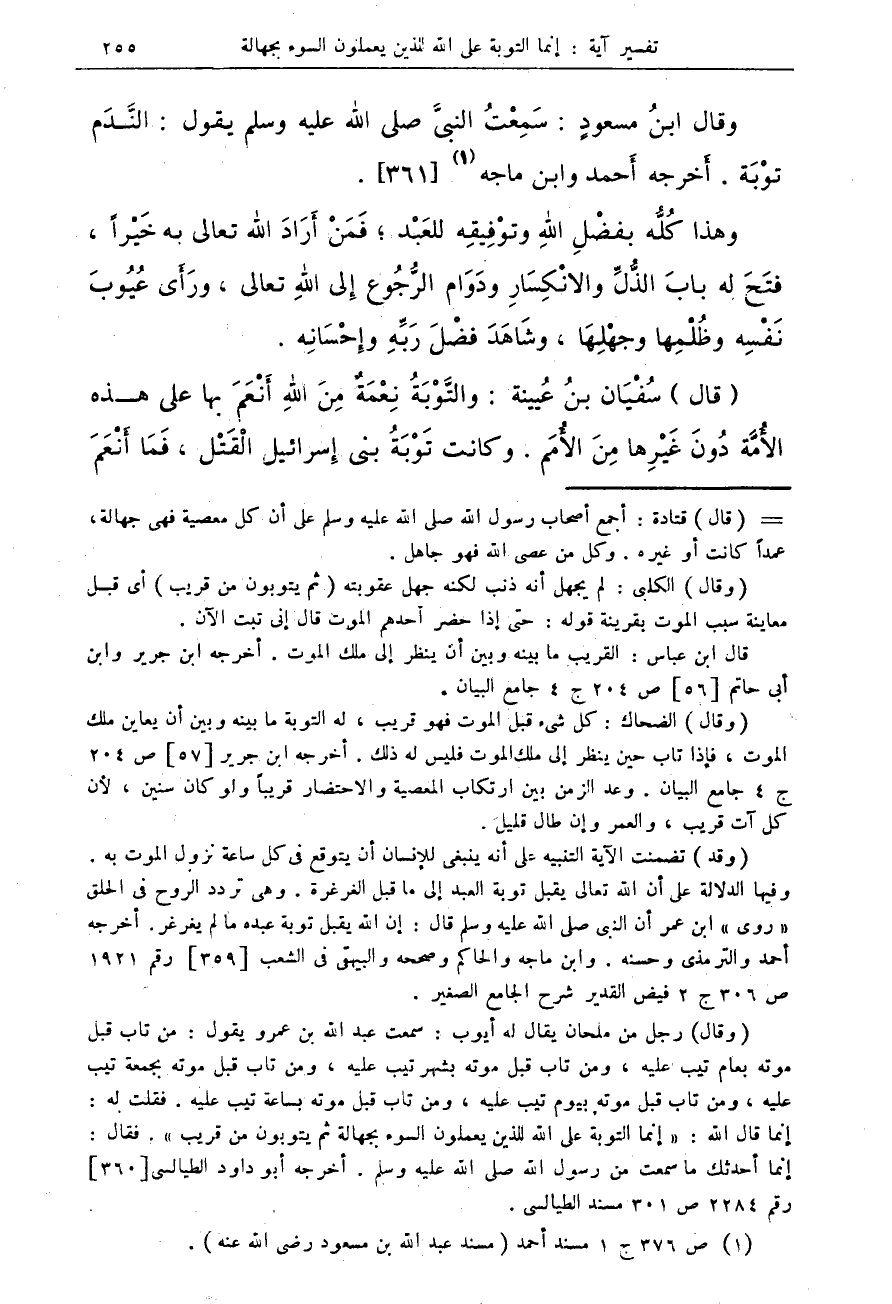 تفسير آية : إنما التوبة على الله للذين يعملون السوء بجهالة ٢٥٥
وقال ابنُ مسعودٍ : سَمِعْتُ النبىَّ صلى الله عليه وسلم يقول : النَّدَم
توْبَة . أخرجه أحمد وابن ماجه (١) [٣٦١] .
وهذا كُلُّه بفضْلِ اللهِ وتوْفيقِه للعَبْد ؛ فَمَنْ أَرَادَ الله تعالى به خَيْراً ،
فتَحَ له بابَ الذُّلِّ والانْكِسَارِ ودَوَام الرُّجُوع إلى اللهِ تعالى ، ورَأَى عُيُوبَ
نَفْسِه وظُلْمِها وجهْلِهَا ، وشَاهَدَ فضْلَ رَبِّهِ وإحْسَانِه .
( قال ) سُفْيَان بنُ عُيينة : والتَّوْبَةُ نِعْمَةٌ مِنَ اللهِ أَنْعَمَ بها على هـذه
الأُمَّة دُونَ غَيْرِها مِنَ الأُمَم . وكانت تَوْبَةُ بنى إسرائيل الْقَتْل ، فَمَا أَنْعَمَ
= ( قال ) قتادة : أجمع أصحاب رسول الله صلى الله عليه وسلم على أن كل معصية فهى جهالة،
عمداً كانت أو غيره . وكل من عصى الله فهو جاهل .
( وقال ) الكلبى : لم يجهل أنه ذنب لكنه جهل عقوبته ( ثم يتوبون من قريب ) أى قبل
معاينة سبب الموت بقرينة قوله : حتى إذا حضر أحدهم الموت قال إنى تبت الآن .
قال ابن عباس : القريب ما بينه وبين أن ينظر إلى ملك الموت . أخرجه ابن جرير وابن
أبى حاتم [٥٦] ص ٢٠٤ ج ٤ جامع البيان .
( وقال ) الضحاك : كل شىء قبل الموت فهو قريب ، له التوبة ما بينه وبين أن يعاين ملك
الموت ، فإذا تاب حين ينظر إلى ملك الموت فليس له ذلك . أخرجه ابن جرير [٥٧] ص ٢٠٤
ج ٤ جامع البيان . وعد الزمن بين ارتكاب المعصية والاحتضار قريباً ولو كان سنين ، لأن
كل آت قريب ، والعمر وإن طال قليل .
( وقد ) تضمنت الآية التنبيه على أنه ينبغى للإنسان أن يتوقع فى كل ساعة نزول الموت به .
وفيها الدلالة على أن الله تعالى يقبل توبة العبد إلى ما قبل الغرغرة . وهى تردد الروح فى الحلق
« روى » ابن عمر أن النبى صلى الله عليه وسلم قال : إن الله يقبل توبة عبده ما لم يغرغر. أخرجه
أحمد والترمذى وحسنه . وابن ماجه والحاكم وصححه والبيهقى فى الشعب [٣٥٩] رقم ١٩٢١
ص ٣٠٦ ج ٢ فيض القدير شرح الجامع الصغير .
( وقال) رجل من ملحان يقال له أيوب : سمعت عبد الله بن عمرو يقول : من تاب قبل
موته بعام تيب عليه ، ومن تاب قبل موته بشهر تيب عليه ، ومن تاب قبل موته بجمعة تيب
عليه ، ومن تاب قبل موته بيوم تيب عليه ، ومن تاب قبل موته بساعة تيب عليه . فقلت له :
إنما قال الله : « إنما التوبة على الله للذين يعملون السوء بجهالة ثم يتوبون من قريب » . فقال :
إنما أحدثك ما سمعت من رسول الله صلى الله عليه وسلم . أخرجه أبو داود الطيالسى[٣٦٠]
رقم ٢٢٨٤ ص ٣٠١ مسند الطيالسى .
(١) ص ٣٧٦ ج ١ مسند أحمد ( مسند عبد الله بن مسعود رضى الله عنه ) .